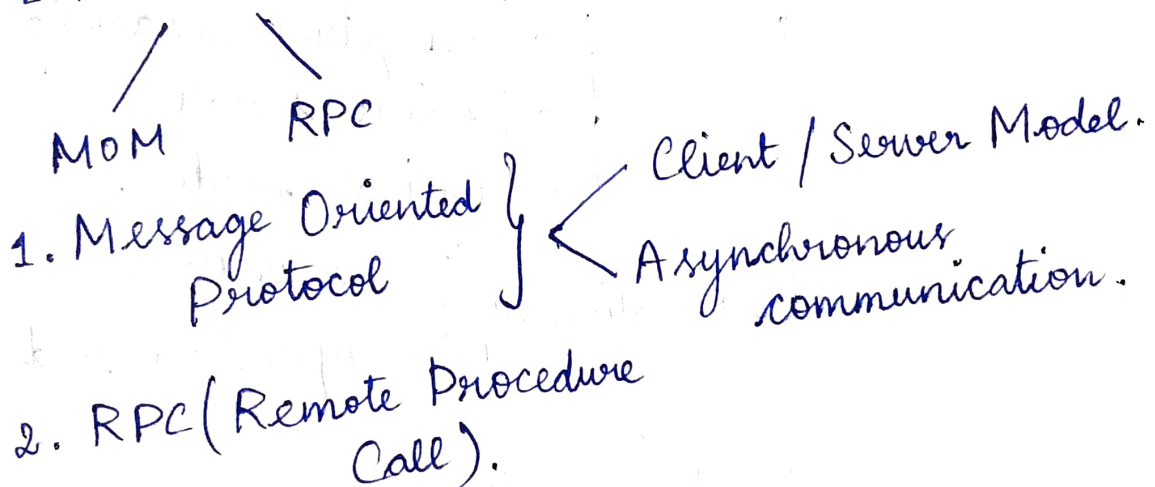 MOM
RPC
1. Message Oriented
Protocol
Client / Server Model.
Asynchronous
communication.
2. RPC (Remote Procedure
Call).